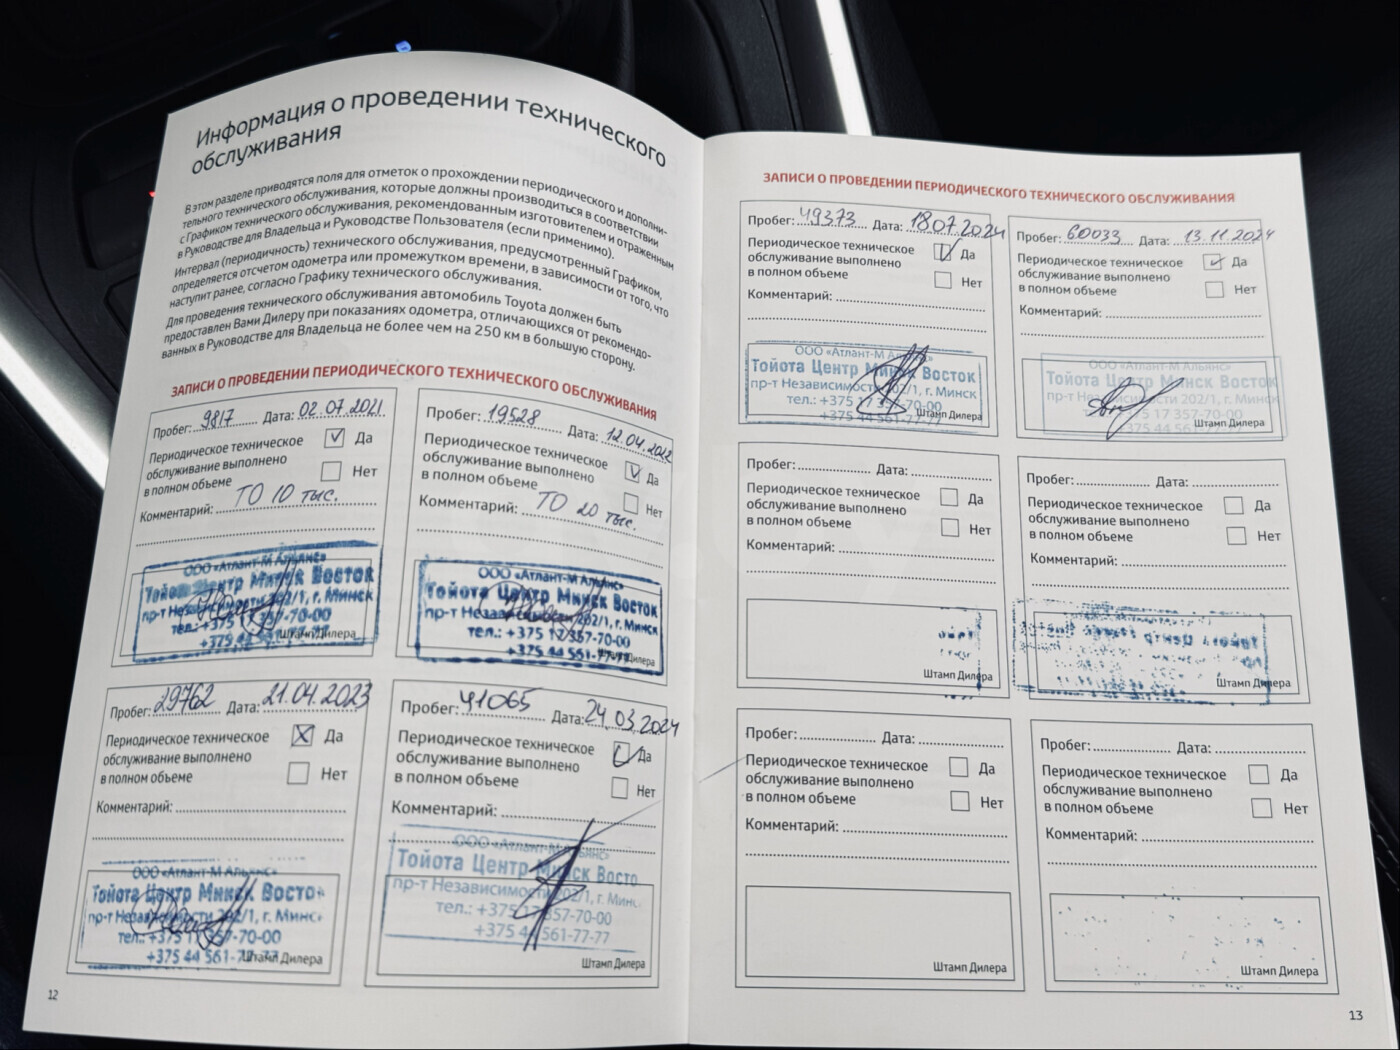 Информация о проведении технического
обслуживания
В этом разделе приводятся поля для отметок о прохождении периодического и дополни-
тельного технического обслуживания, которые должны производиться в соответствии
с Графиком технического обслуживания, рекомендованным изготовителем и отраженным
в Руководстве для Владельца и Руководстве Пользователя (если применимо).
Интервал (периодичность) технического обслуживания, предусмотренный Графиком,
определяется отсчетом одометра или промежутком времени, в зависимости от того, что
наступит ранее, согласно Графику технического обслуживания.
Для проведения технического обслуживания автомобиль Toyota должен быть
предоставлен Вами Дилеру при показаниях одометра, отличающихся от рекомендо-
ванных в Руководстве для Владельца не более чем на 250 км в большую сторону.
ЗАПИСИ О ПРОВЕДЕНИИ ПЕРИОДИЧЕСКОГО ТЕХНИЧЕСКОГО ОБСЛУЖИВАНИЯ
Пробег: 9817 Дата: 02.07.2021
Периодическое техническое
обслуживание выполнено
в полном объеме
Да
Нет
Комментарий: ТО 10 тыс.
ООО «Атлант-М Альянс»
Тойота Центр Минск Восток
пр-т Независимости 202/1, г. Минск
тел.: +375 17 357-70-00
+375 44 561-77-77
Штамп Дилера
Пробег: 19528 Дата: 12.04.2022
Периодическое техническое
обслуживание выполнено
в полном объеме
Да
Нет
Комментарий: ТО 20 тыс.
ООО «Атлант-М Альянс»
Тойота Центр Минск Восток
пр-т Независимости 202/1, г. Минск
тел.: +375 17 357-70-00
+375 44 561-77-77
Штамп Дилера
Пробег: 29762 Дата: 21.04.2023
Периодическое техническое
обслуживание выполнено
в полном объеме
Да
Нет
Комментарий:
ООО «Атлант-М Альянс»
Тойота Центр Минск Восто
пр-т Независимости 202/1, г. Минс
тел.: +375 17 357-70-00
+375 44 561-77-77
Штамп Дилера
Пробег: 41065 Дата: 24.03.2024
Периодическое техническое
обслуживание выполнено
в полном объеме
Да
Нет
Комментарий:
ООО «Атлант-М Альянс»
Тойота Центр Минск Восто
пр-т Независимости 202/1, г. Минс
тел.: +375 17 357-70-00
+375 44 561-77-77
Штамп Дилера
12
ЗАПИСИ О ПРОВЕДЕНИИ ПЕРИОДИЧЕСКОГО ТЕХНИЧЕСКОГО ОБСЛУЖИВАНИЯ
Пробег: 49373 Дата: 18.07.2024
Периодическое техническое
обслуживание выполнено
в полном объеме
Да
Нет
Комментарий:
ООО «Атлант-М Альянс»
Тойота Центр Минск Восток
пр-т Независимости 202/1, г. Минск
тел.: +375 17 357-70-00
+375 44 561-77-77
Штамп Дилера
Пробег: 60033 Дата: 13.11.2024
Периодическое техническое
обслуживание выполнено
в полном объеме
Да
Нет
Комментарий:
ООО «Атлант-М Альянс»
Тойота Центр Минск Восток
пр-т Независимости 202/1, г. Минск
17 357-70-00
+375 44 561-77-77
Штамп Дилера
Пробег: Дата:
Периодическое техническое
обслуживание выполнено
в полном объеме
Да
Нет
Комментарий:
Штамп Дилера
Пробег: Дата:
Периодическое техническое
обслуживание выполнено
в полном объеме
Да
Нет
Комментарий:
Штамп Дилера
Пробег: Дата:
Периодическое техническое
обслуживание выполнено
в полном объеме
Да
Нет
Комментарий:
Штамп Дилера
Пробег: Дата:
Периодическое техническое
обслуживание выполнено
в полном объеме
Да
Нет
Комментарий:
Штамп Дилера
13